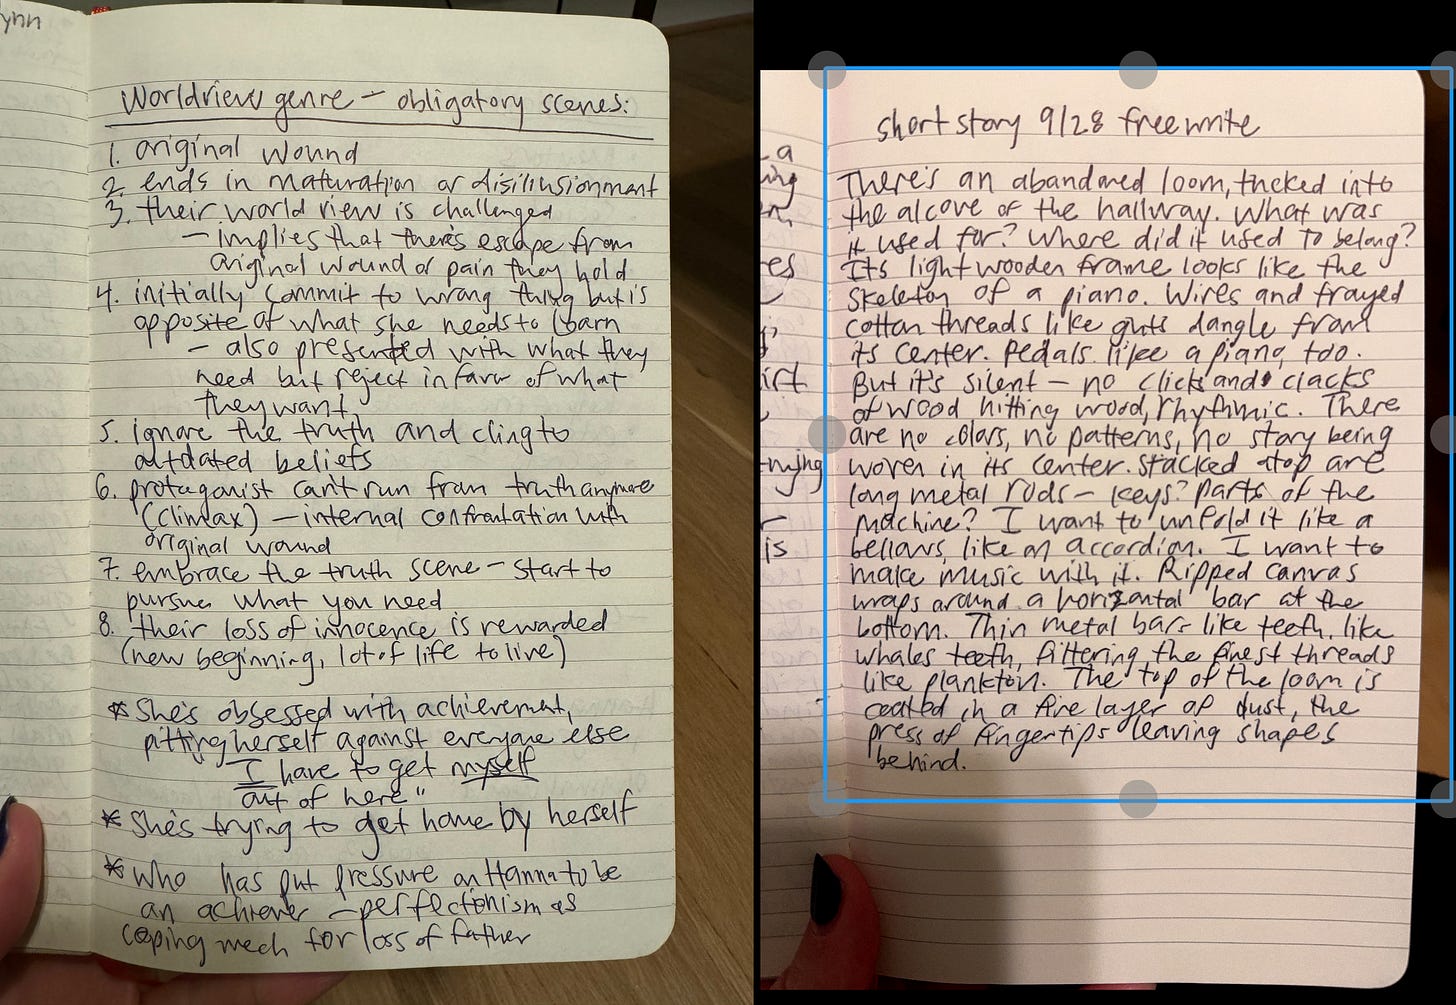 ynn
Worldview genre – obligatory scenes:
1. original wound
2. ends in maturation or disillusionment
3. their world view is challenged
– implies that there's escape from
original wound or pain they hold
4. initially commit to wrong thing but is
opposite of what she needs to learn
– also presented with what they
need but reject in favor of what
they want
5. ignore the truth and cling to
outdated beliefs
6. protagonist can't run from truth anymore
(climax) – internal confrontation with
original wound
7. embrace the truth scene – start to
pursue what you need
8. their loss of innocence is rewarded
(new beginning, lot of life to live)
* She's obsessed with achievement,
pitting herself against everyone else
I have to get myself
out of here"
* She's trying to get home by herself
* Who has put pressure on Hanna to be
an achiever – perfectionism as
coping mech for loss of father
a
ing
es
irt
is
short story 9/28 freewrite
There's an abandoned loom, tucked into
the alcove of the hallway. What was
it used for? Where did it used to belong?
Its light wooden frame looks like the
skeleton of a piano. Wires and frayed
cotton threads like guts dangle from
its center. Pedals like a piano, too.
But it's silent – no clicks and clacks
of wood hitting wood, rhythmic. There
are no colors, no patterns, no story being
woven in its center. Stacked atop are
long metal rods – keys? Parts of the
machine? I want to unfold it like a
bellows, like an accordion. I want to
make music with it. Ripped canvas
wraps around a horizontal bar at the
bottom. Thin metal bars like teeth, like
whales teeth, filtering the finest threads
like plankton. The top of the loom is
coated in a fine layer of dust, the
press of fingertips leaving shapes
behind.